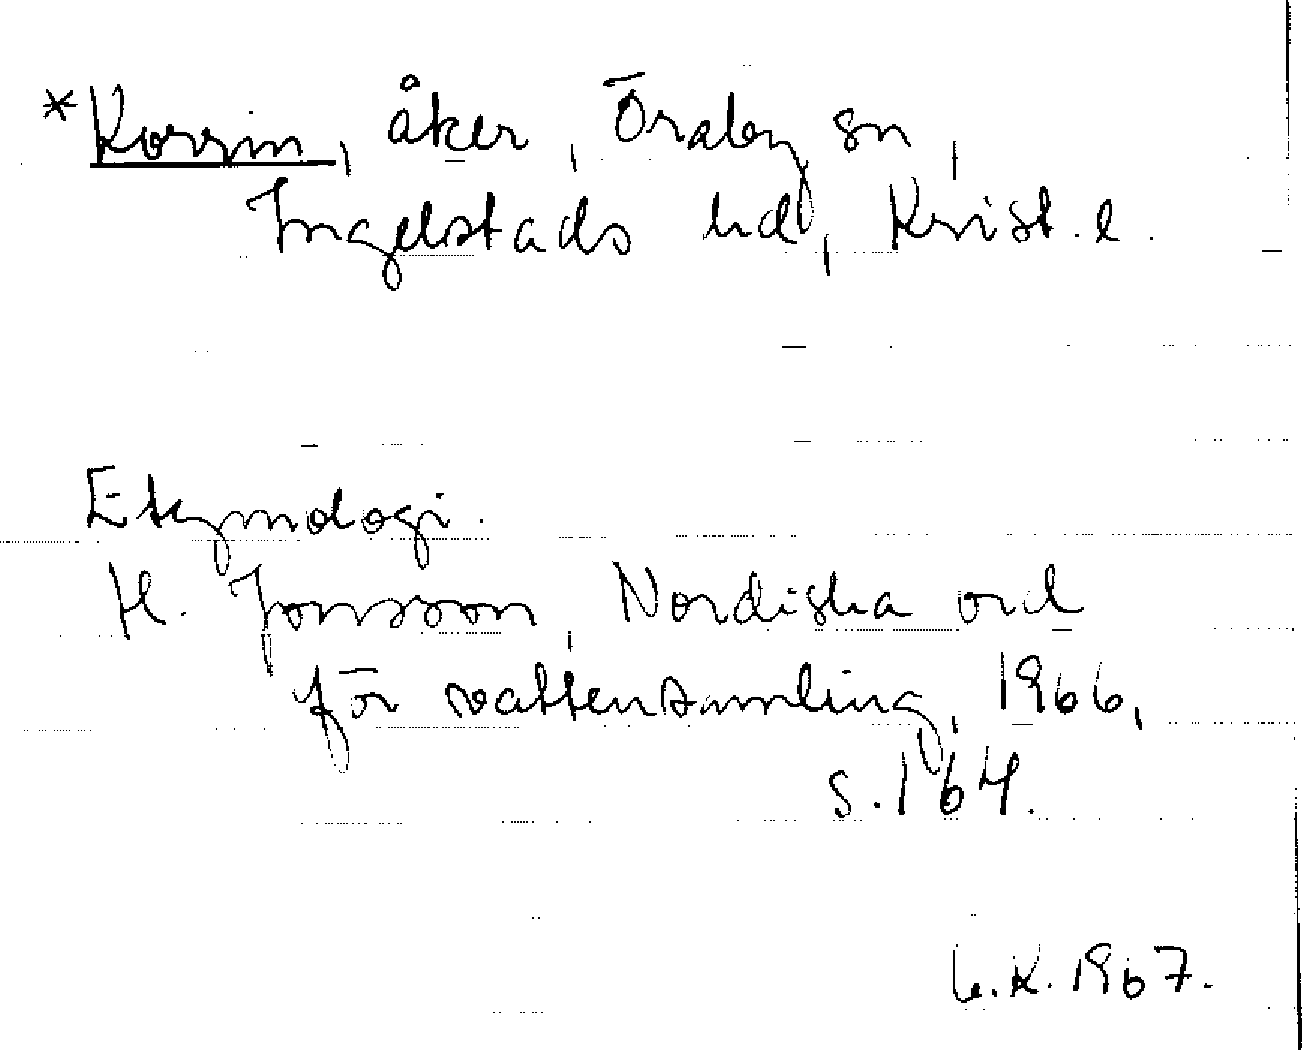 *Korrin, åker, Öraby sn,
Ingelstads hd, Krist. l.
Etymologi.
H. Jonsson, Nordiska ord
för vattensamling, 1966,
s. 164.
K. 1967.